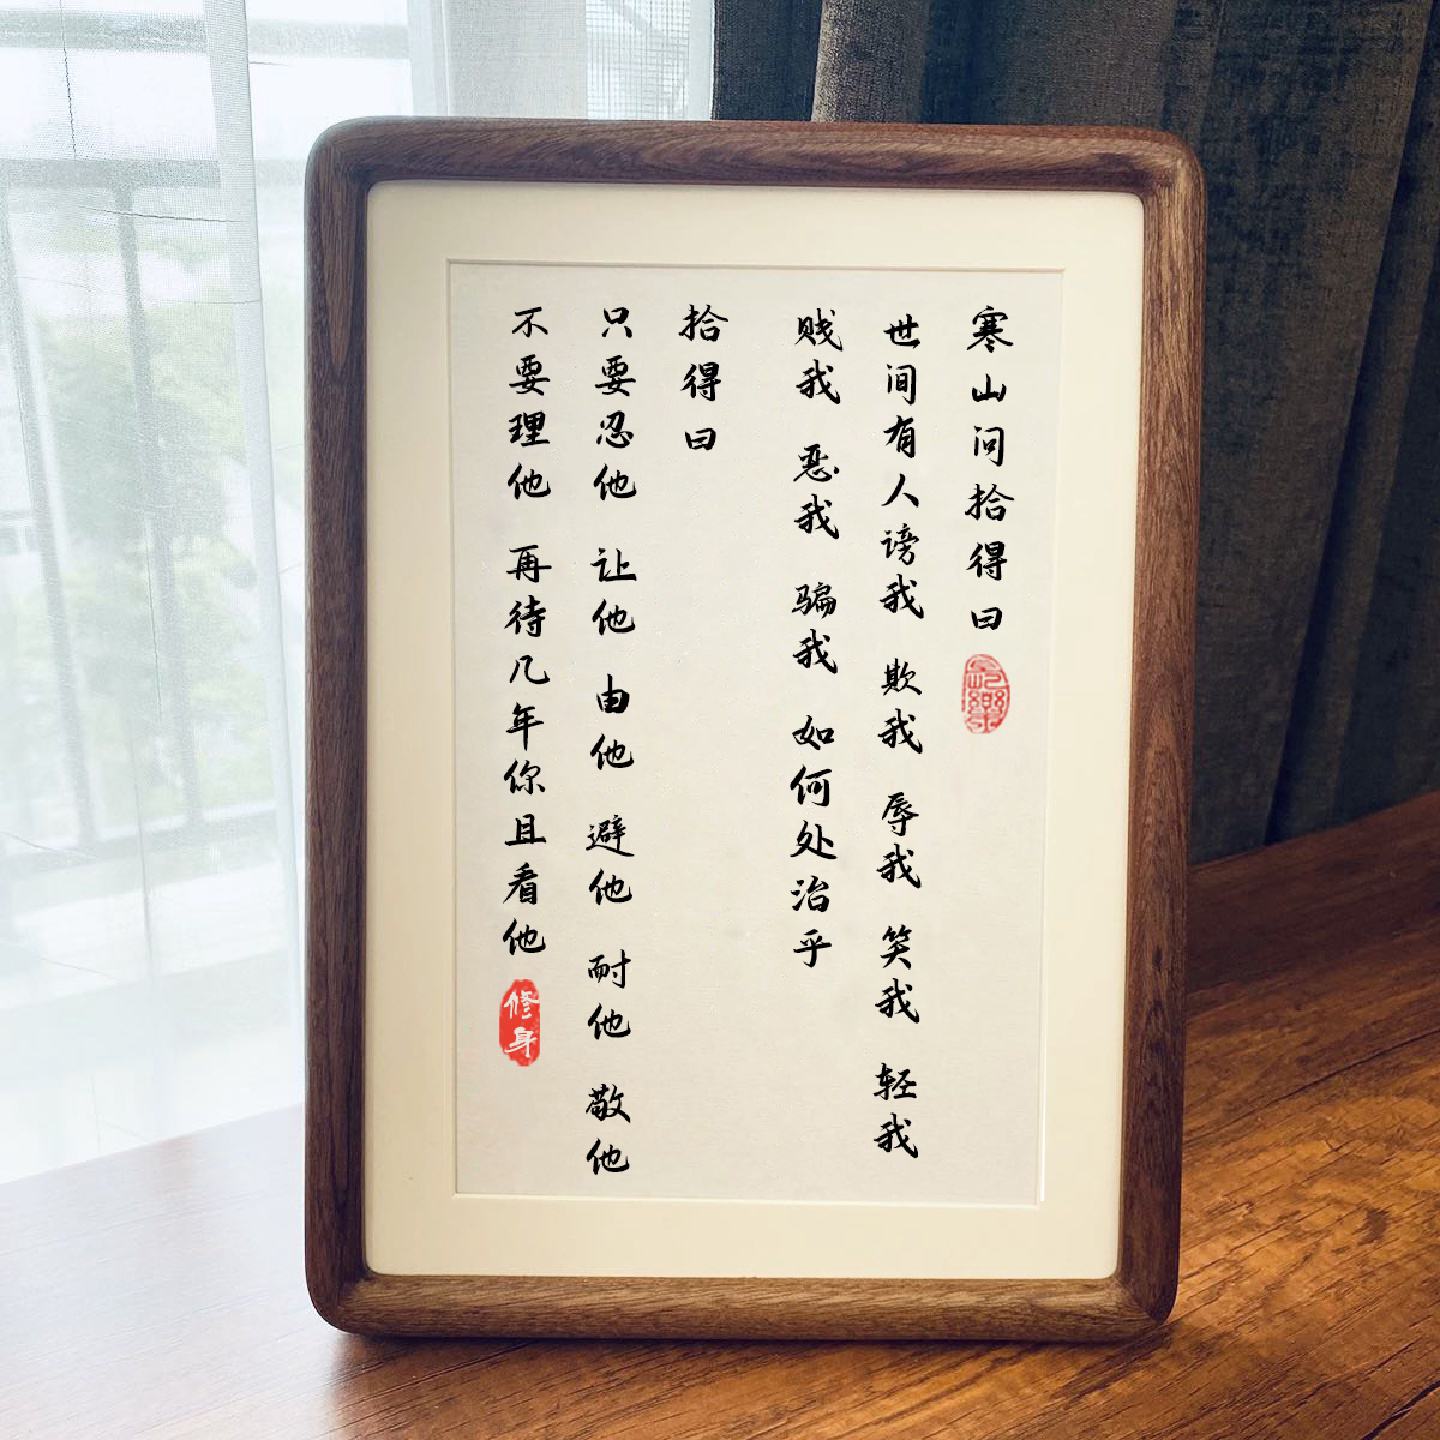 寒山问拾得曰
世间有人谤我 欺我 辱我 笑我 轻我
贱我 恶我 骗我 如何处治乎
拾得曰
只要忍他 让他 由他 避他 耐他 敬他
不要理他 再待几年你且看他
修身